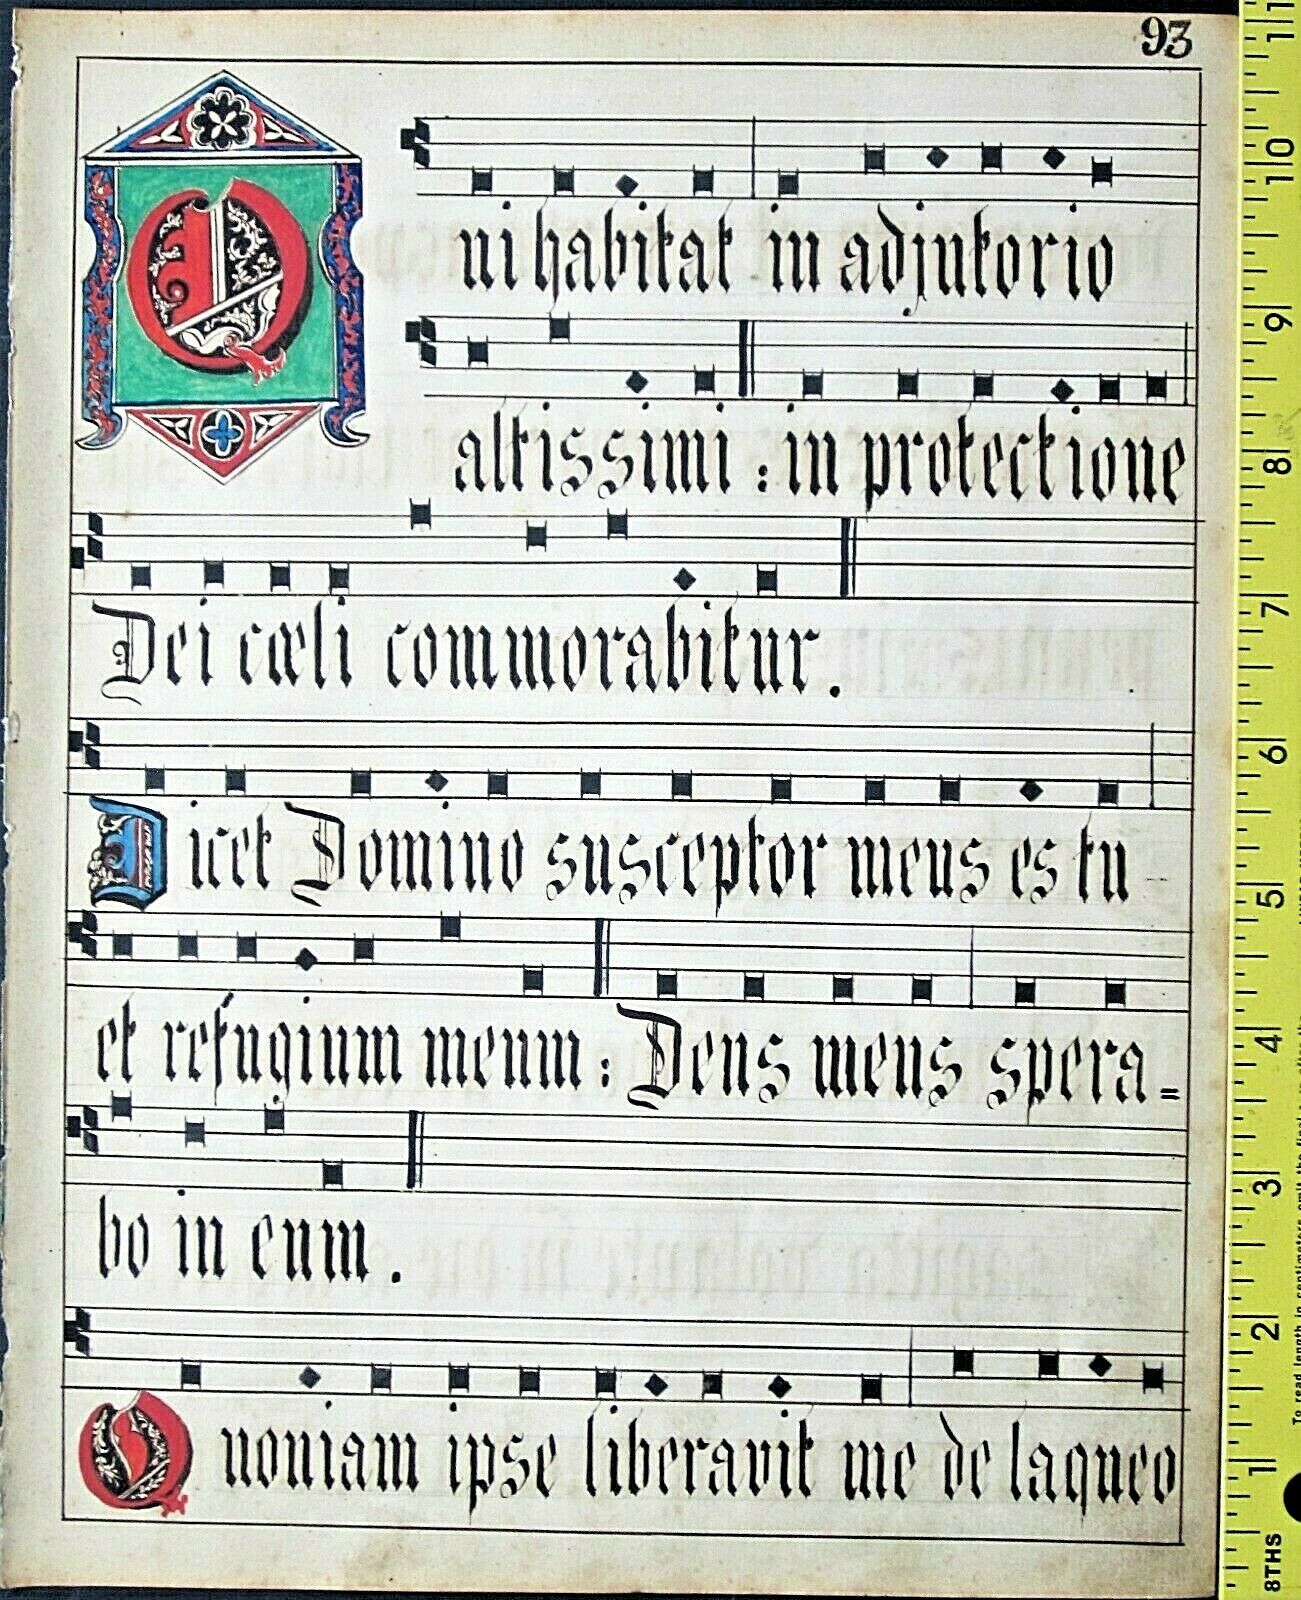 93
Qui habitat in adjutorio
altissimi : in protectione
Dei cœli commorabitur.
Dicet Domino susceptor meus es tu
et refugium meum : Deus meus spera=
bo in eum.
Quoniam ipse liberavit me de laqueo
11
10
9
8
7
6
5
4
3
2
1
8THS